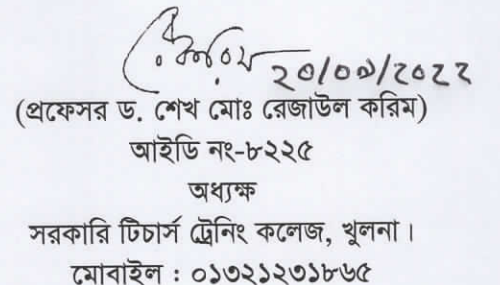 রেকরিম ২০/০৯/২০২২
(প্রফেসর ড. শেখ মোঃ রেজাউল করিম)
আইডি নং-৮২২৫
অধ্যক্ষ
সরকারি টিচার্স ট্রেনিং কলেজ, খুলনা।
মোবাইল : ০১৩২১২৩১৮৬৫